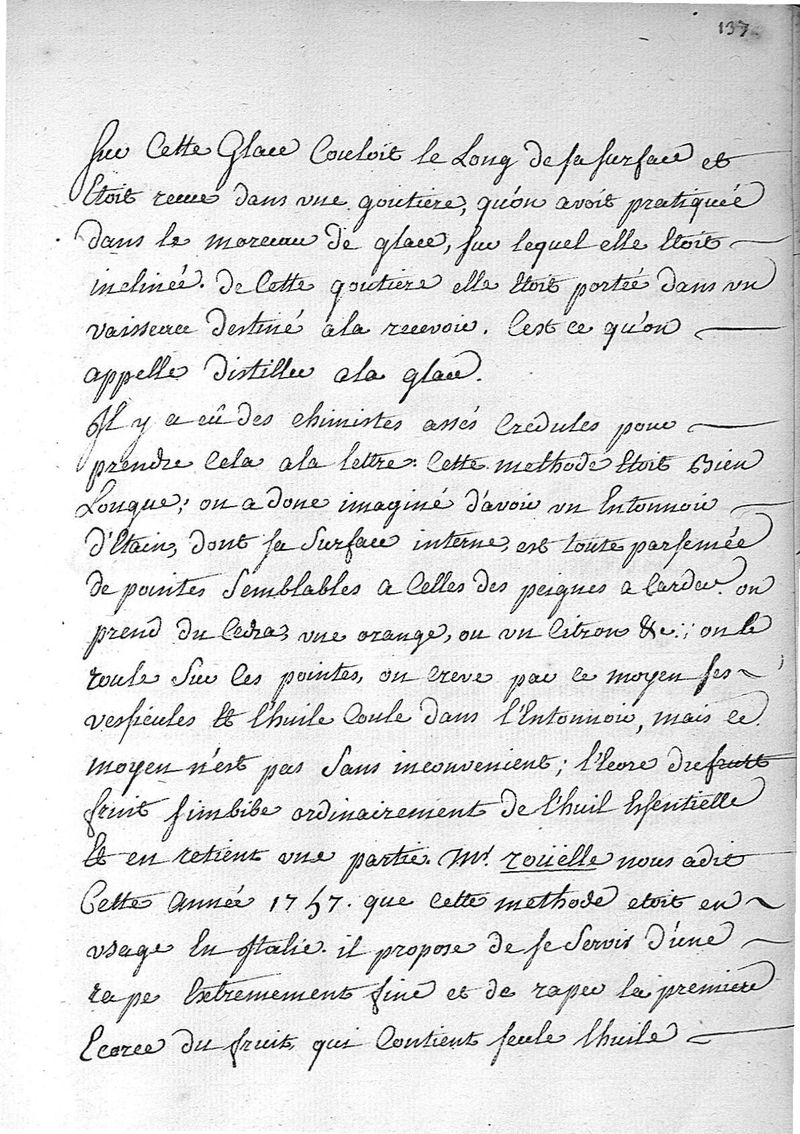 137
sur Cette Glace Couloit le Long de sa surface et
Etoit recue dans une goutiere, qu'on avoit pratiquée
dans le morceau de glace, sur lequel elle Etoit
inclinée. de Cette goutiere elle Etoit portée dans un
vaisseau destiné a la recevoir. C'est ce qu'on
appelle distiller a la glace.
Il y a eû des chimistes assés Credules pour
prendre Cela a la lettre. Cette methode Etoit Bien
Longue; on a donc imaginé d'avoir un Entonnoir
d'Etain, dont sa Surface interne, est toute parsemée
de pointes Semblables a Celles des peignes a Carder. on
prend du Cedra, une orange, ou un Citron &c.; on le
roule Sur Ces pointes, on creve par ce moyen ses
vesficules Et l'huile Coule dans l'Entonnoir, mais ce
moyen n'est pas Sans inconvenient; l'Ecorce du fruitt
fruit s'imbibe ordinairement de l'huil Essentielle
Et en retient une partie. Mr. roüelle nous a dit
Cette Année 1757. que cette methode etoit en
usage En Italie. il propose de se Servir d'une
rape Extremement fine et de raper la premiere
Ecorce du fruit, qui Contient seule l'huile